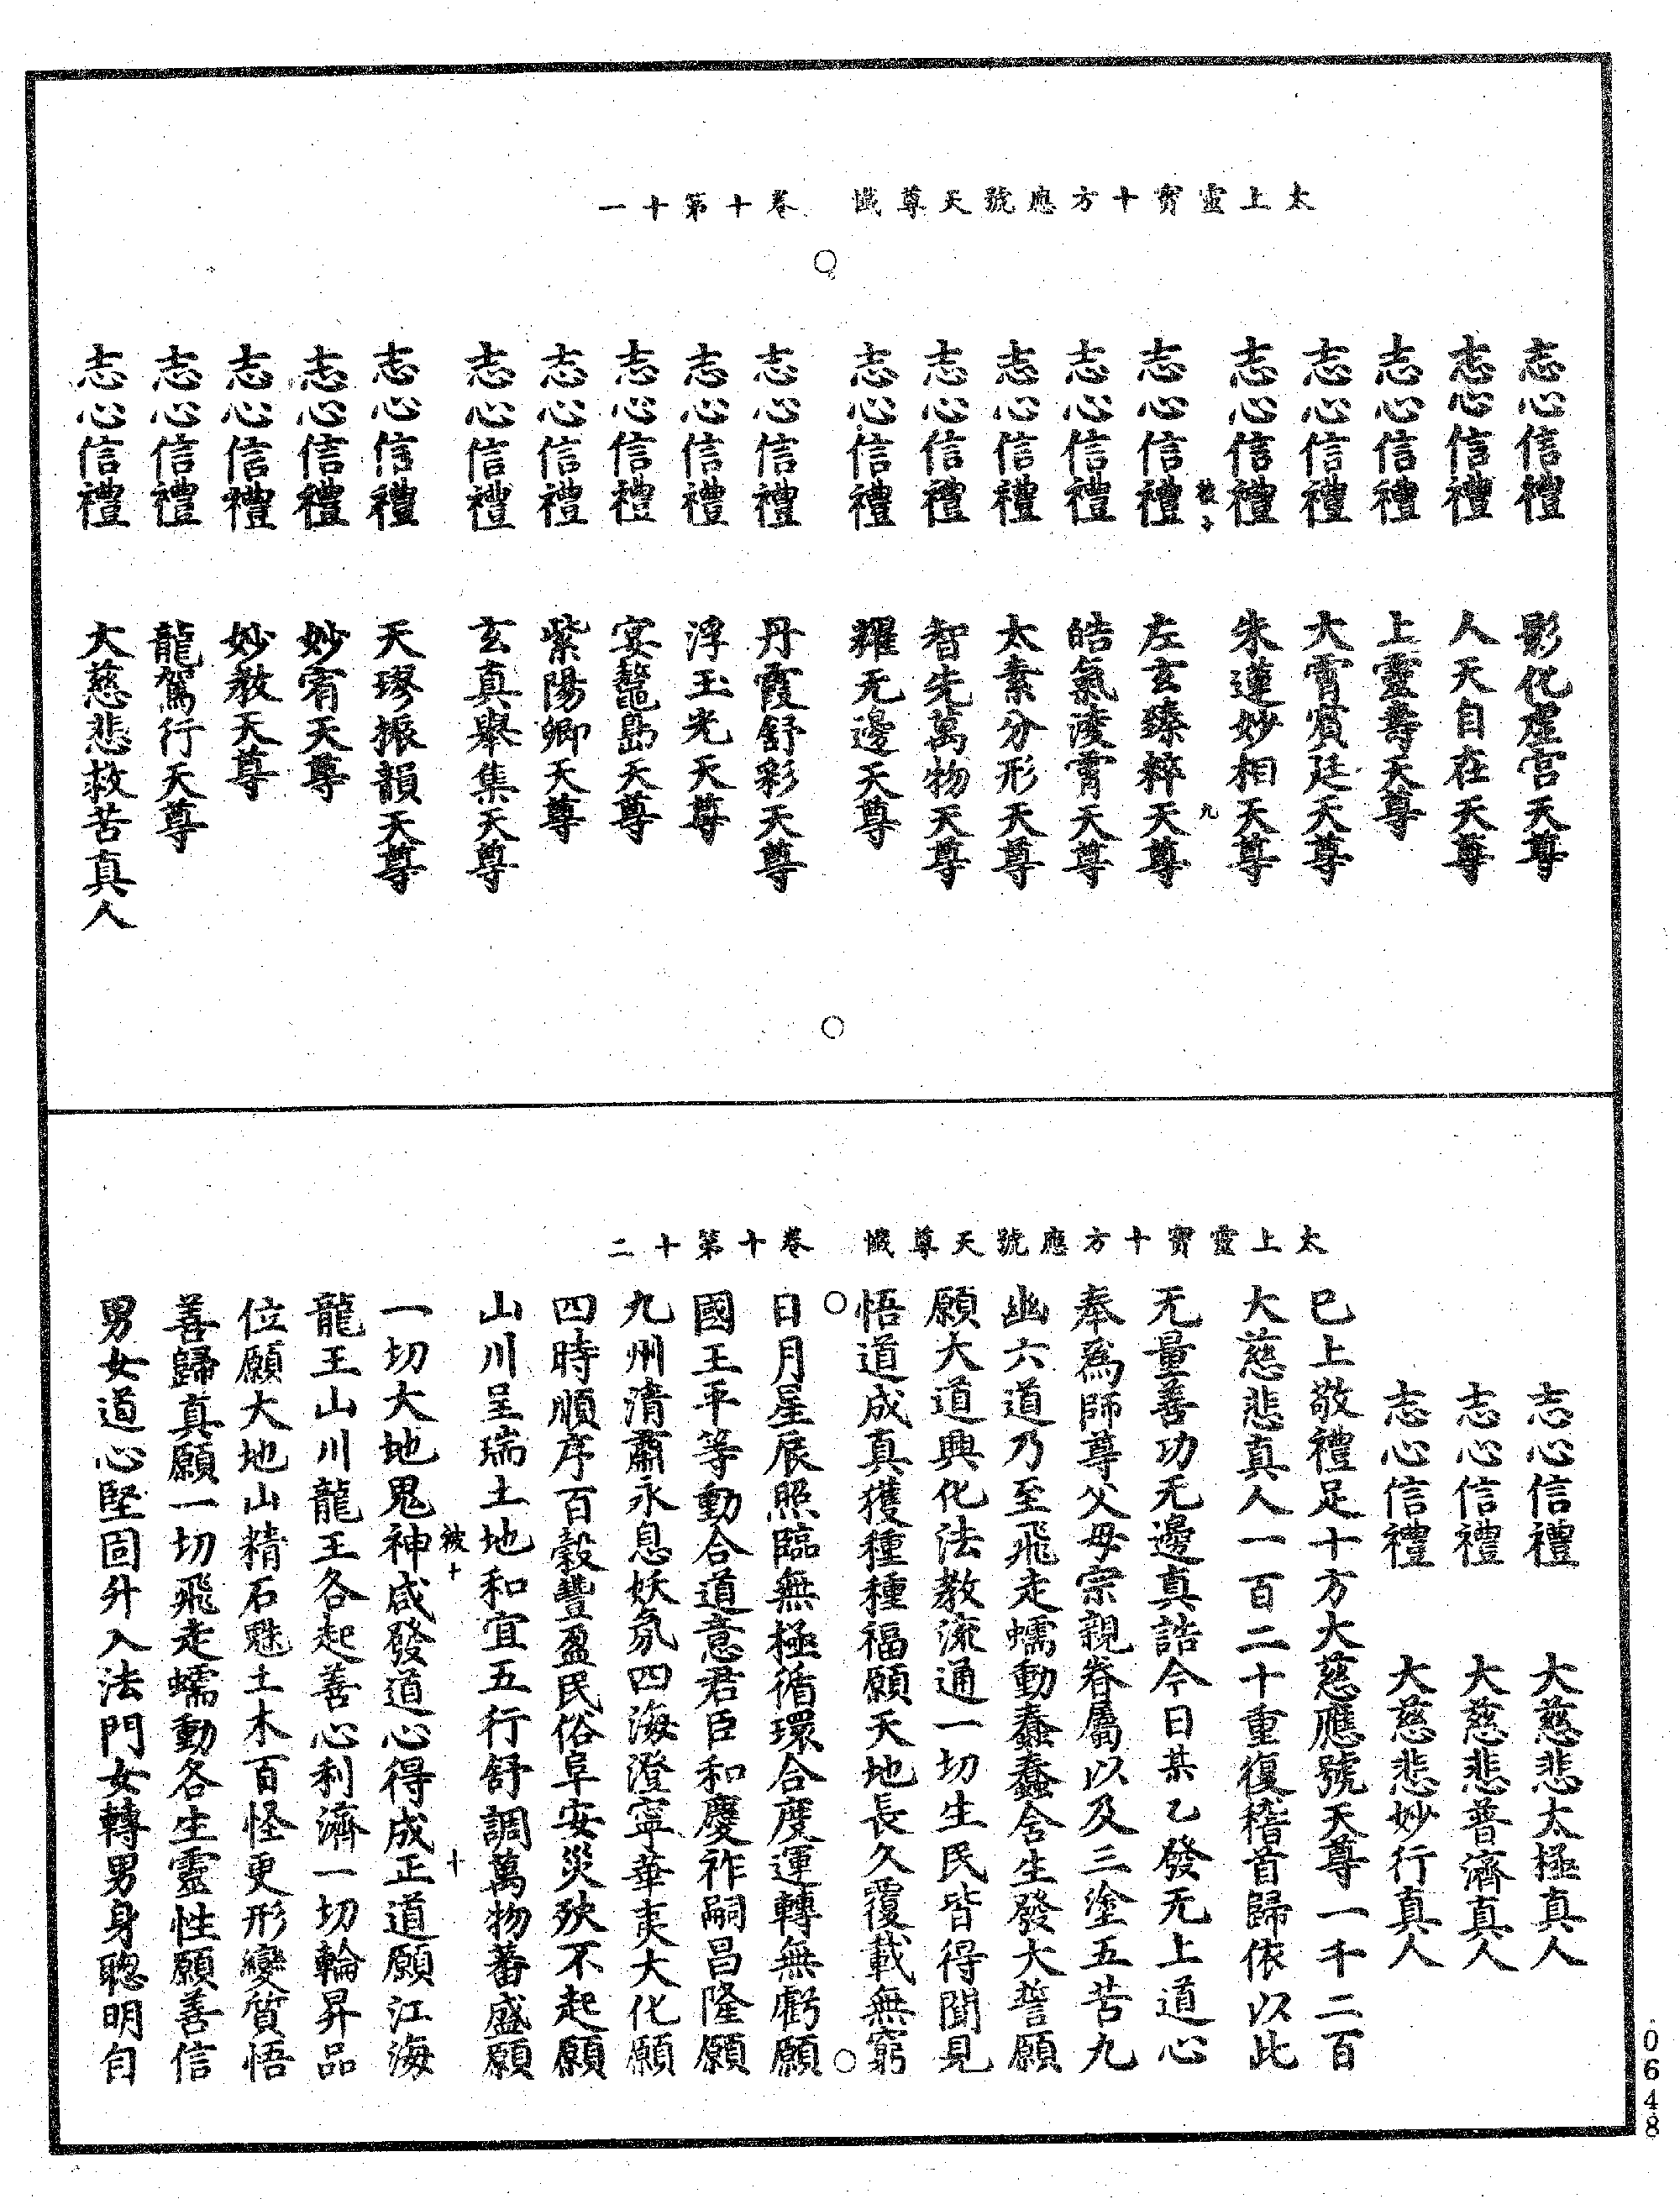 太上靈寶十方應號天尊懺　卷十第十一
志心信禮　影化虛宮天尊
志心信禮　人天自在天尊
志心信禮　上靈壽天尊
志心信禮　大霄賓廷天尊
志心信禮　朱蓮妙相天尊
九
志心信禮　左玄臻粹天尊
志心信禮　皓氣淩霄天尊
志心信禮　太素分形天尊
志心信禮　智先萬物天尊
志心信禮　耀无邊天尊
志心信禮　丹霞舒彩天尊
志心信禮　浮玉光天尊
志心信禮　宴鼇島天尊
志心信禮　紫陽卿天尊
志心信禮　玄真舉集天尊
志心信禮　天璆振韻天尊
志心信禮　妙宥天尊
志心信禮　妙教天尊
志心信禮　龍駕行天尊
志心信禮　大慈悲救苦真人
太上靈寶十方應號天尊懺　卷十第十二
志心信禮　大慈悲太極真人
志心信禮　大慈悲普濟真人
志心信禮　大慈悲妙行真人
已上敬禮足十方大慈應號天尊一千二百
大慈悲真人一百二十重復稽首歸依以此
无量善功无邊真誥今日某乙發无上道心
奉為師尊父母宗親眷屬以及三塗五苦九
幽六道乃至飛走蠕動蠢蠢含生發大誓願
願大道興化法教流通一切生民皆得聞見
悟道成真獲種種福願天地長久覆載無窮
日月星辰照臨無極循環合度運轉無虧願
國王平等動合道意君臣和慶祚嗣昌隆願
九州清肅永息妖氛四海澄寧華夷大化願
四時順序百穀豐盈民俗阜安災殃不起願
山川呈瑞土地和宜五行舒調萬物蕃盛願
被十　十
一切大地鬼神咸發道心得成正道願江海
龍王山川龍王各起善心利濟一切輪昇品
位願大地山精石魅土木百怪更形變質悟
善歸真願一切飛走蠕動各生靈性願善信
男女道心堅固升入法門女轉男身聰明自
0648